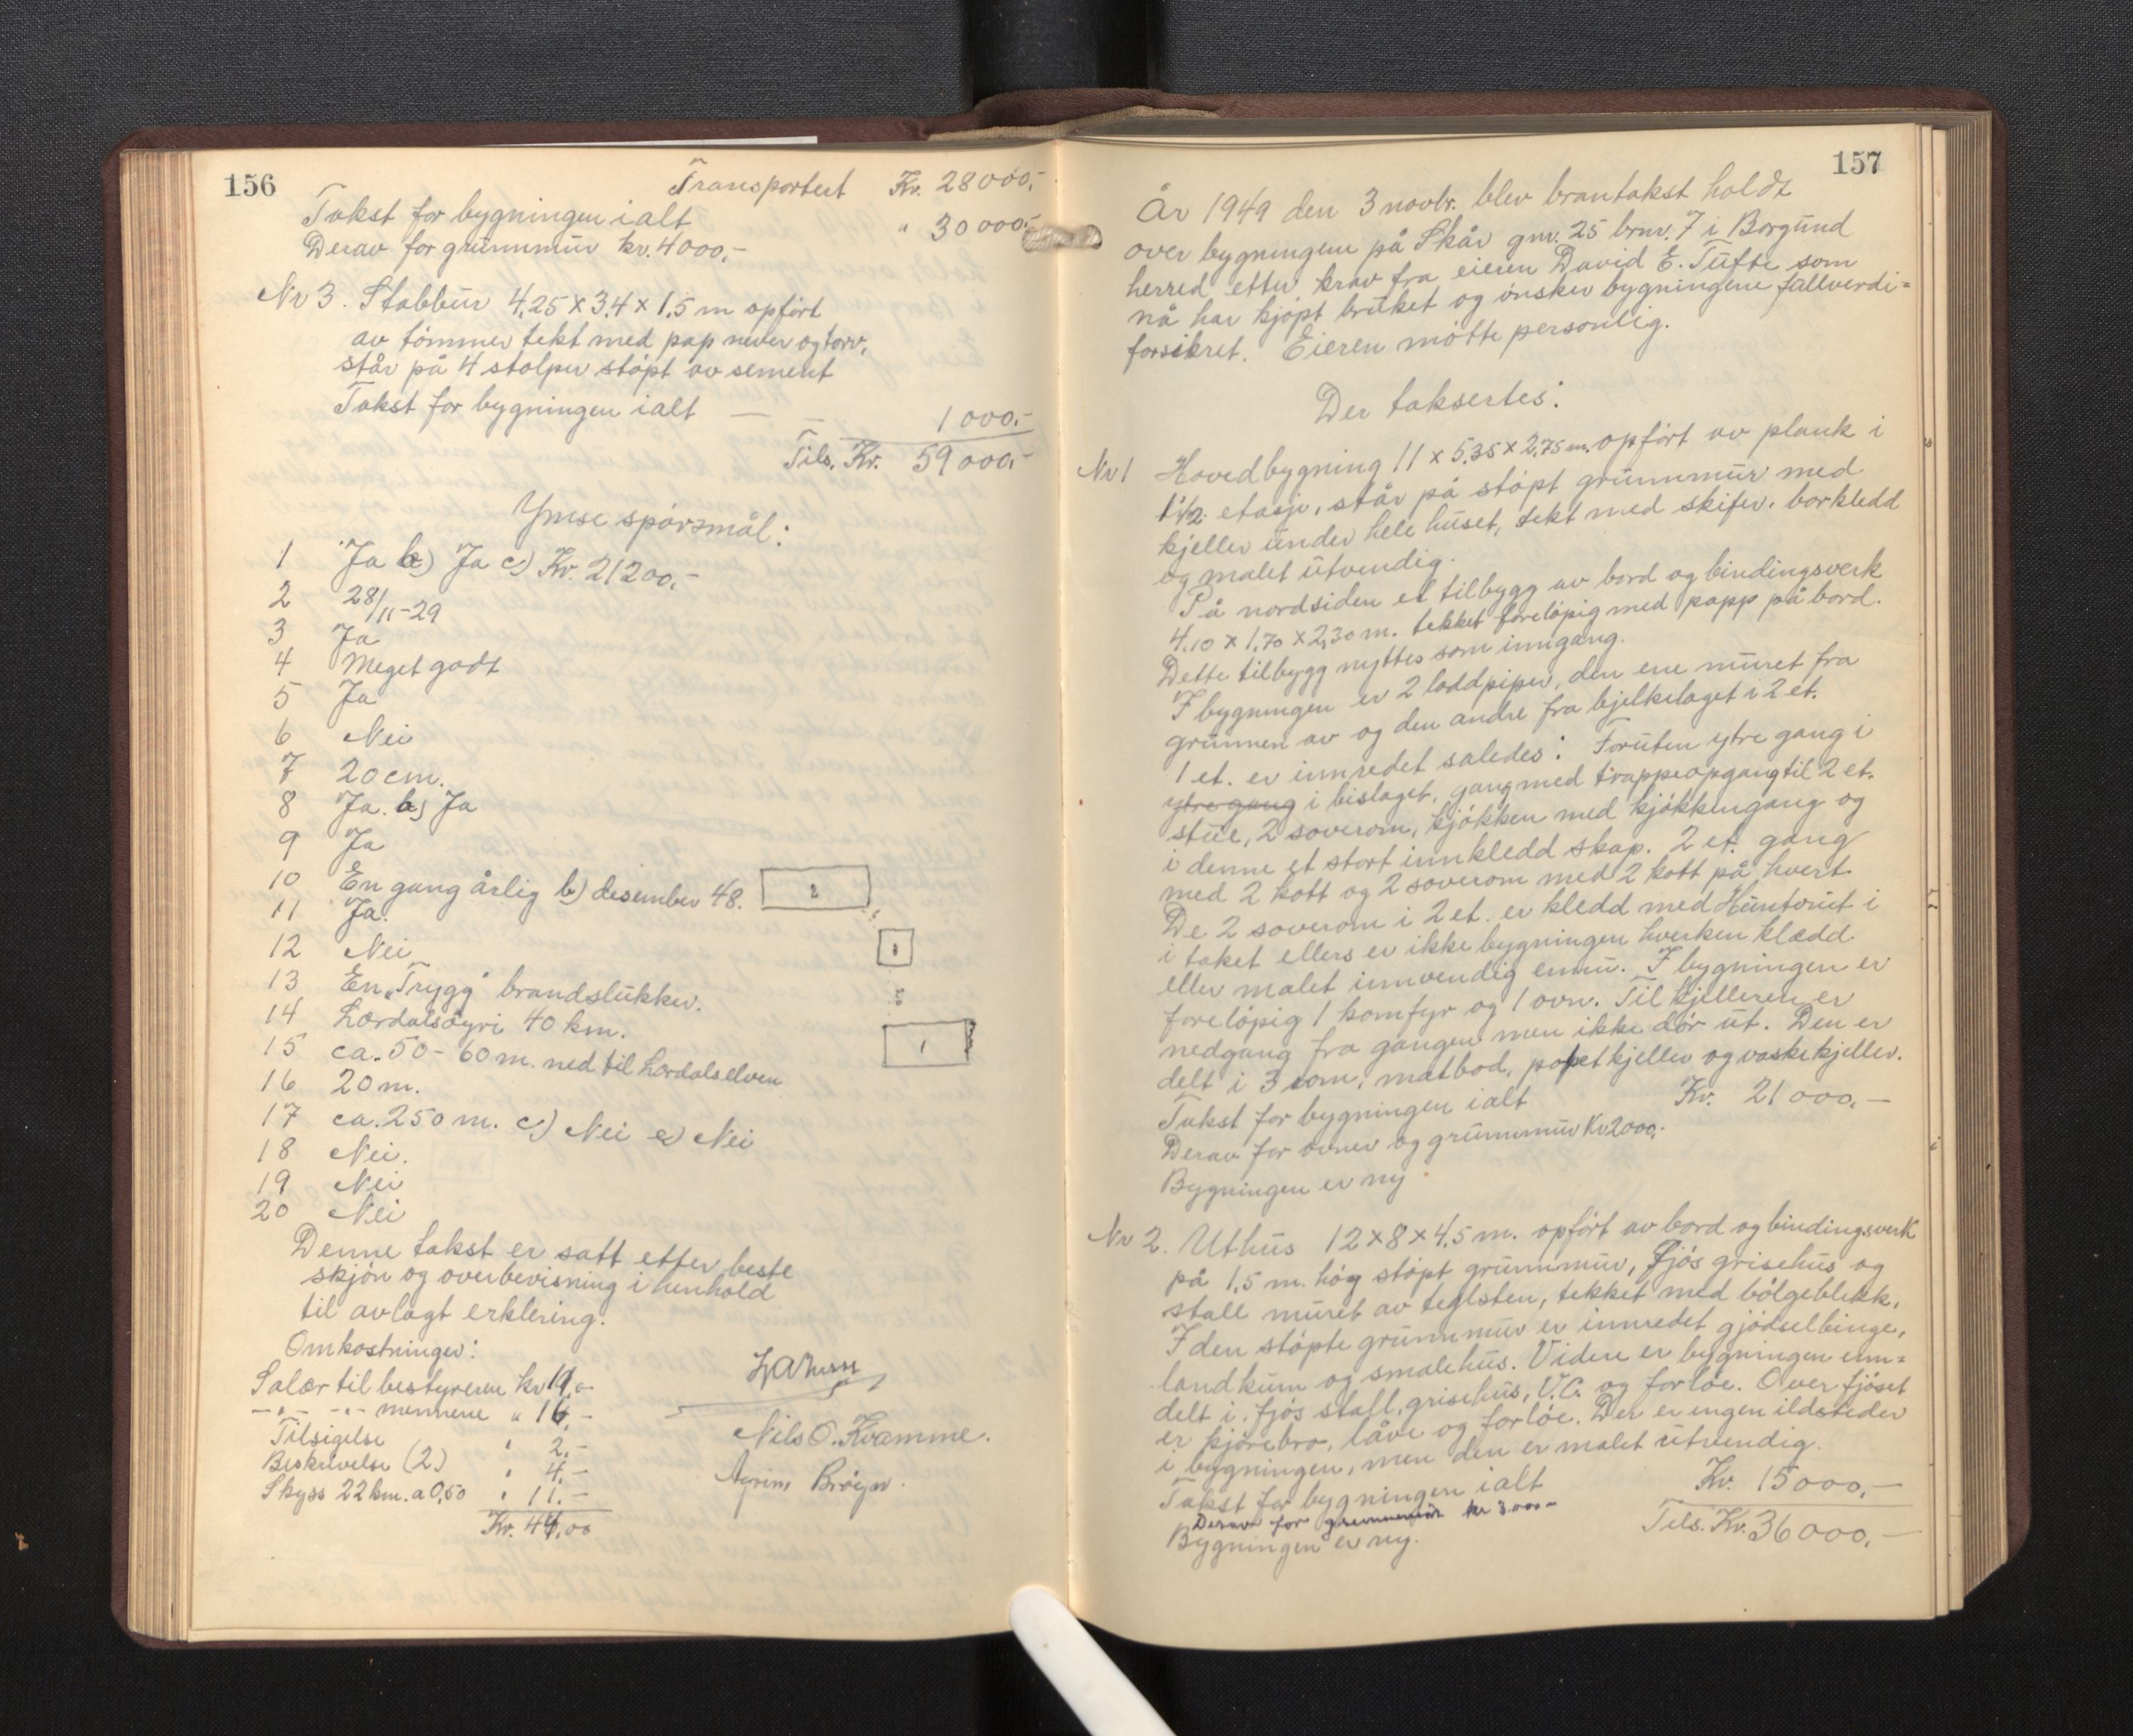 156
Transportert Kr. 28000,-
Takst for bygningen ialt " 30000,-
Derav for grunnmur kr. 4000,-
Nr 3. Stabbur 4,25 x 3,4 x 1,5 m opført
av tømmer tekt med pap never og torv,
står på 4 stolper støpt av sement
Takst for bygningen ialt — 1000,-
Tils. Kr. 59000,-
Ymse spørsmål:
1 Ja b) Ja c) Kr. 21200,-
2 28/11-29
3 Ja
4 Meget godt
5 Ja
6 Nei
7 20 cm.
8 Ja. b) Ja
9 Ja
10 En gang årlig b) desember 48.
11 Ja.
12 Nei
13 En „Trygg" brandslukker.
14 Lærdalsøyri 40 km.
15 ca. 50-60 m. ned til Lærdalselven
16 20 m.
17 ca. 250 m. c) Nei e) Nei
18 Nei.
19 Nei
20 Nei
2
1
1
Denne takst er satt etter beste
skjøn og overbevisning i henhold
til avlagt erklering.
Omkostninger:
Salær til bestyreren kr 19,-
-"- -"- mennene " 16,-
Tilsigelse " 2,-
Beskrivelse (2) " 4,-
Skyss 22 km. a 0,50 " 11,-
Kr. 44,00
Nils O. Kvamme.
157
År 1949 den 3 novbr. blev brantakst holdt
over bygningene på Skår gnr. 25 brnr. 7 i Borgund
herred etter krav fra eieren David E. Tufte som
nå har kjøpt bruket og ønsker bygningene fullverdi=
forsikret. Eieren møtte personlig.
Der taksertes:
Nr 1 Hovedbygning 11 x 5,35 x 2,75 m. opført av plank i
1 1/2 etasje, står på støpt grunnmur med
kjeller under hele huset, tekt med skifer. borkledd
og malet utvendig.
På nordsiden et tilbygg av bord og bindingsverk
4,10 x 1,70 x 2,30 m. tekket foreløpig med papp på bord.
Dette tilbygg nyttes som inngang.
I bygningen er 2 loddpiper, den ene muret fra
grunnen av og den andre fra bjelkelaget i 2 et.
1 et. er innredet saledes: Foruten ytre gang i
ytre gang i bislaget, gang med trappeopgang til 2 et.
stue, 2 soverom, kjøkken med kjøkkengang og
i denne et stort innkledd skap. 2 et. gang
med 2 kott og 2 soverom med 2 kott på hvert.
De 2 soverom i 2 et. er kledd med Huntonit i
i taket ellers er ikke bygningen hverken klædd
eller malet innvendig ennu. I bygningen er
foreløpig 1 komfyr og 1 ovn. Til kjelleren er
nedgang fra gangen men ikke dør ut. Den er
delt i 3 rom, matbod, potetkjeller og vaskekjeller.
Takst for bygningen ialt Kr. 21000,-
Derav for ovner og grunnmur Kr 2000,-
Bygningen er ny
Nr 2. Uthus 12 x 8 x 4,5 m. opført av bord og bindingsverk
på 1,5 m. høg støpt grunnmur, fjøs grisehus og
stall muret av teglsten, tekket med bølgeblikk,
I den støpte grunnmur er innredet gjødselbinge,
landkum og smalehus. Videre er bygningen inn=
delt i fjøs stall, grisehus, V.C. og forløe. Over fjøset
er kjørebro, låve og forløe. Der er ingen ildsteder
i bygningen, men den er malet utvendig.
Takst for bygningen ialt Kr. 15000,-
Derav for grunnmur kr 3000-
Bygningen er ny.
Tils. Kr. 36000,-